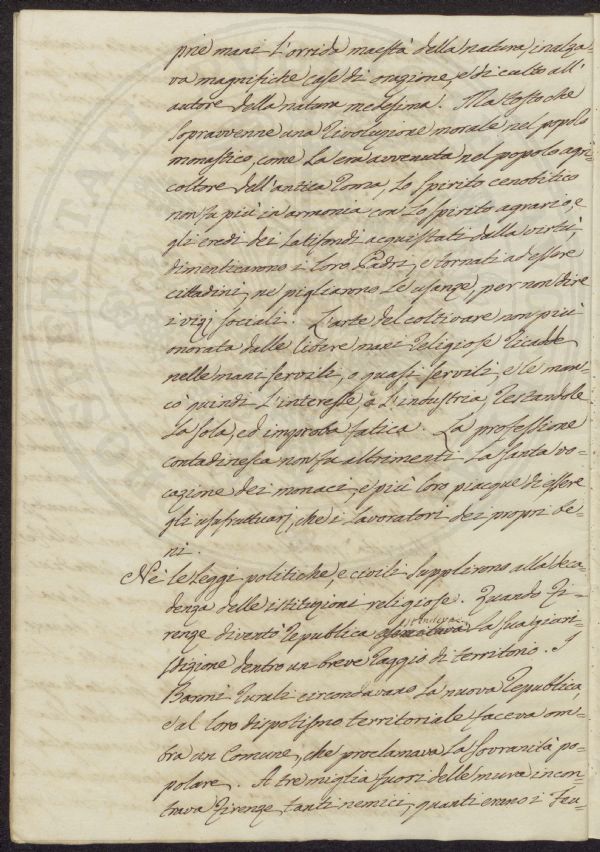 prie mani l'orrida maestà della natura, inalza=
va magnifiche case di orazione, e di culto all'
autore della natura medesima. Ma tosto che
sopravvenne una rivoluzione morale nel popolo
monastico, come la era avvenuta nel popolo agri=
coltore dell'antica Roma, lo spirito cenobitico
non fu più in armonia con lo spirito agrario, e
gli eredi dei latifondi acquistati dalla virtù,
dimenticarono i loro Padri, e tornati ad essere
cittadini, ne pigliarono le usanze, per non dire
i vizj sociali. L'arte del coltivare non più
onorata dalle libere mani religiose ricadde
nelle mani servili, o quasi servili, e le man=
cò quindi l'interesse, e l'industria, restandole
la sola, ed improba fatica. La professione
contadinesca non fu altrimenti la santa vo=
cazione dei monaci, e più loro piacque di essere
gli usufruttuarj, che i lavoratori dei proprj be=
ni.
Nè le leggi politiche, e civili supplirono alla deca=
denza delle istituzioni religiose. Quando Fi=
renze diventò Repubblica la sua giuri=
sdizione dentro un breve raggio di territorio. I
Baroni rurali circondavano la nuova Repubblica,
e al loro dispotismo territoriale faceva om=
bra un Comune, che proclamava la sovranità po=
polare. A tre miglia fuori delle mura incon=
trava Firenze tanti nemici, quanti erano i feu=